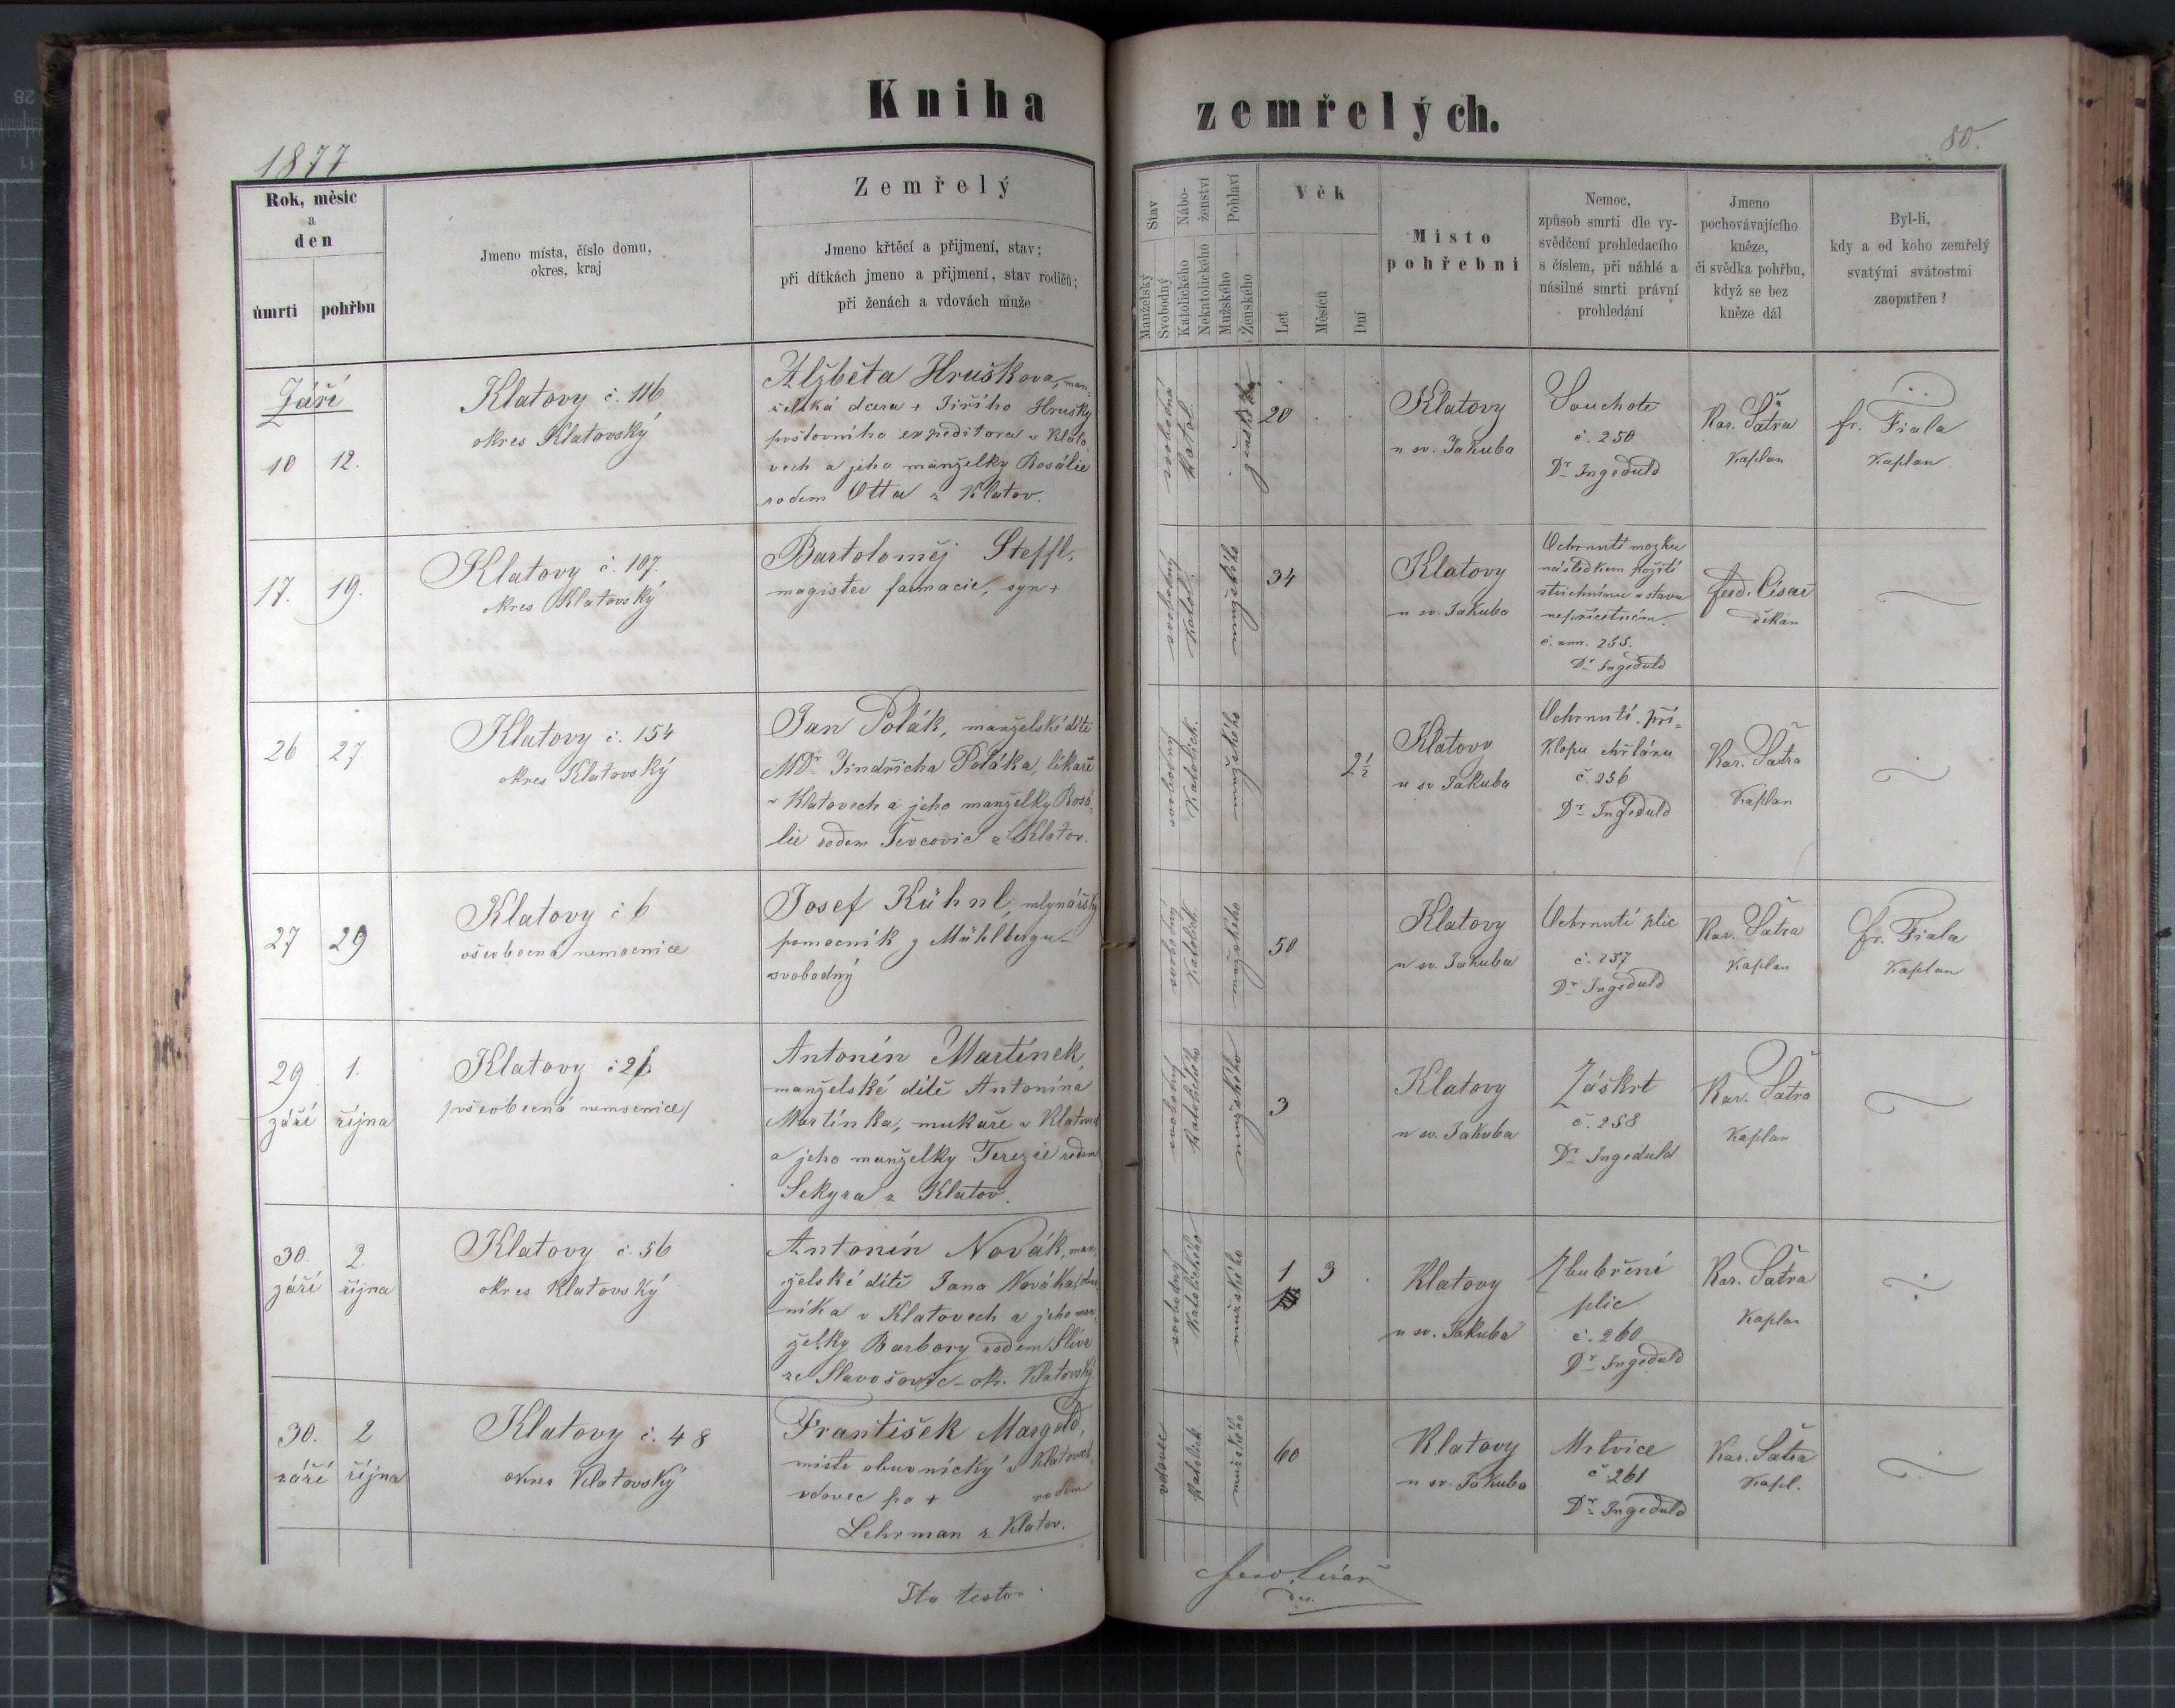 Kniha zemřelých.
1877
80.
Rok, měsíc
a
den
úmrti
pohřbu
Jmeno místa, číslo domu,
okres, kraj
Zemřelý
Jmeno křtěcí a přijmení, stav;
při dítkách jmeno a přijmení, stav rodičů;
při ženách a vdovách muže
Stav
Manželský
Svobodný
Nábo-
ženství
Katolického
Nekatolického
Pohlaví
Mužského
Ženského
Věk
Let
Měsíců
Dní
Místo
pohřební
Nemoc,
způsob smrti dle vy-
svědčení prohledacího
s číslem, při náhlé a
násilné smrti právní
prohledání
Jmeno
pochovávajícího
kněze,
či svědka pohřbu,
když se bez
kněze dál
Byl-li,
kdy a od koho zemřelý
svatými svátostmi
zaopatřen?
Září
10
12.
Klatovy č. 116
okres Klatovský
Alžběta Hruškova, man-
želská dcera + Jiřího Hrušky
poštovního expeditora v Klato
vech a jeho manželky Rosálie
rodem Otta z Klatov.
svobodná
katol.
ženského
20
Klatovy
u sv. Jakuba
Souchotě
č. 250
Dr Ingeduld
Kar. Šatra
Kaplan
fr. Fiala
Kaplan
17.
19.
Klatovy č. 107.
okres Klatovský
Bartoloměj Steffl,
magister farmacie, syn +
svobodný
katol.
mužského
34
Klatovy
u sv. Jakuba
Ochrnutí mozku
následkem požití
strichninu v stavu
nepříčetném.
č. 255.
Dr Ingeduld
ferd. Císař
děkan
26
27
Klatovy č. 154
okres Klatovský
Jan Polák, manželské dítě
MDr Jindřicha Poláka, lékaře
v Klatovech a jeho manželky Rosá
lie rodem Ševcovic z Klatov.
svobodný
Katolick.
mužského
2½
Klatovy
u sv Jakuba
Ochrnutí pří-
klopu chřtánu
č. 256
Dr Ingeduld
Kar. Šatra
Kaplan
27
29
Klatovy č 6
všeobecná nemocnice
Josef Kühnl, mlynářský
pomocník z Mühlbergu
svobodný
svobodný
Katolick.
mužského
50
Klatovy
u sv. Jakuba
Ochrnutí plic
č. 257
Dr Ingeduld
Kar. Šatra
Kaplan
fr. Fiala
Kaplan
29
září
1.
října
Klatovy
všeobecná nemocnice
Antonín Martínek,
manželské dítě Antonína
Martínka, mukaře v Klatovech
a jeho manželky Terezie rodem
Sekyra z Klatov.
svobodný
Katolického
mužského
3
Klatovy
u sv. Jakuba
Záškrt
č. 258
Dr Ingeduld
Kar. Šatra
Kaplan
30.
září
2.
října
Klatovy č. 56
okres Klatovský
Antonín Novák, man-
želské dítě Jana Nováka, obuv
níka v Klatovech a jeho man-
želky Barbory rodem Slíva
ze Slavošovic - ok. Klatovský
svobodný
Katolického
mužského
1
3
Klatovy
u sv. Jakuba
Zbubření
plic
č. 260
Dr Ingeduld
Kar. Šatra
Kaplan
30.
září
2
října
Klatovy č. 48
okres Klatovský
František Margold,
mistr obuvnický v Klatovech,
vdovec po + rodem
Lehrman z Klatov.
vdovec
Katolick.
mužského
60
Klatovy
u sv. Jakuba
Mrtvice
č 261
Dr Ingeduld
Kar. Šatra
Kapl.
Ita testor
Ferd. Císař